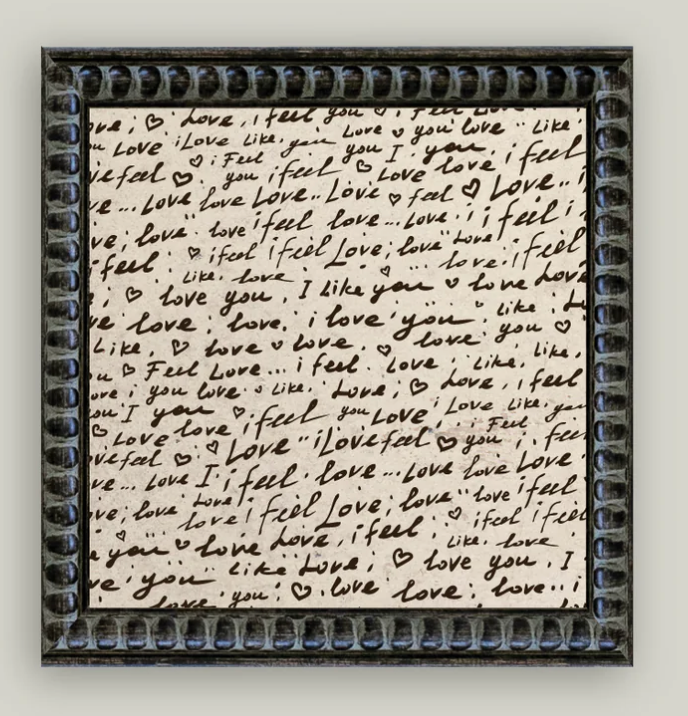 ove; ♡ Love, i feel you ♡ i Feel Love
Love i Love Like, you Love ♡ you love ·· Like
♡ i Feel you I you.
ve feel ♡. you i feel ♡ Love love i feel
ve... Love love Love.. Love ♡ feel ♡ Love.. i
ve; love·· love i feel love... Love i i feel i
i feel ♡ i feel i feel Love; love·· Love i feel
Like, love love.
; ♡ love you. I Like you ♡ love Love
ve love; love, i love you Like
Like, ♡ love ♡ love, ♡ love you ♡
♡ Feel Love... i feel. Love Like, Like,
ove i you love ♡ Like, Love; ♡ Love, i feel
ou I you ♡ i feel you Love i Love Like, you
♡ Love love ♡ i Feel
ove feel ♡ Love·· i Love feel ♡ you i feel
ve... Love I i feel love... Love love Love
ve; love Love love i feel Love; love·· love i feel
you ♡ love Love, i feel ♡ i feel i feel
Like, love
ve you Like Love; ♡ love you. I
love you ♡ love love; love.. i